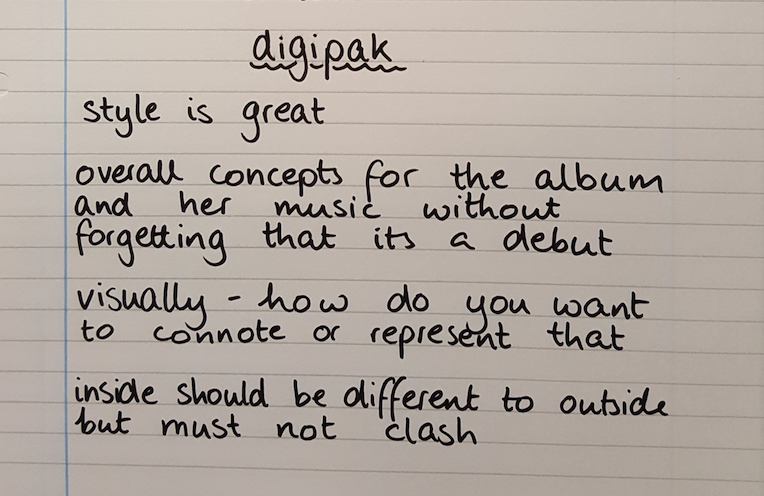 digipak
style is great
overall concepts for the album
and her music without
forgetting that its a debut
visually - how do you want
to connote or represent that
inside should be different to outside
but must not clash